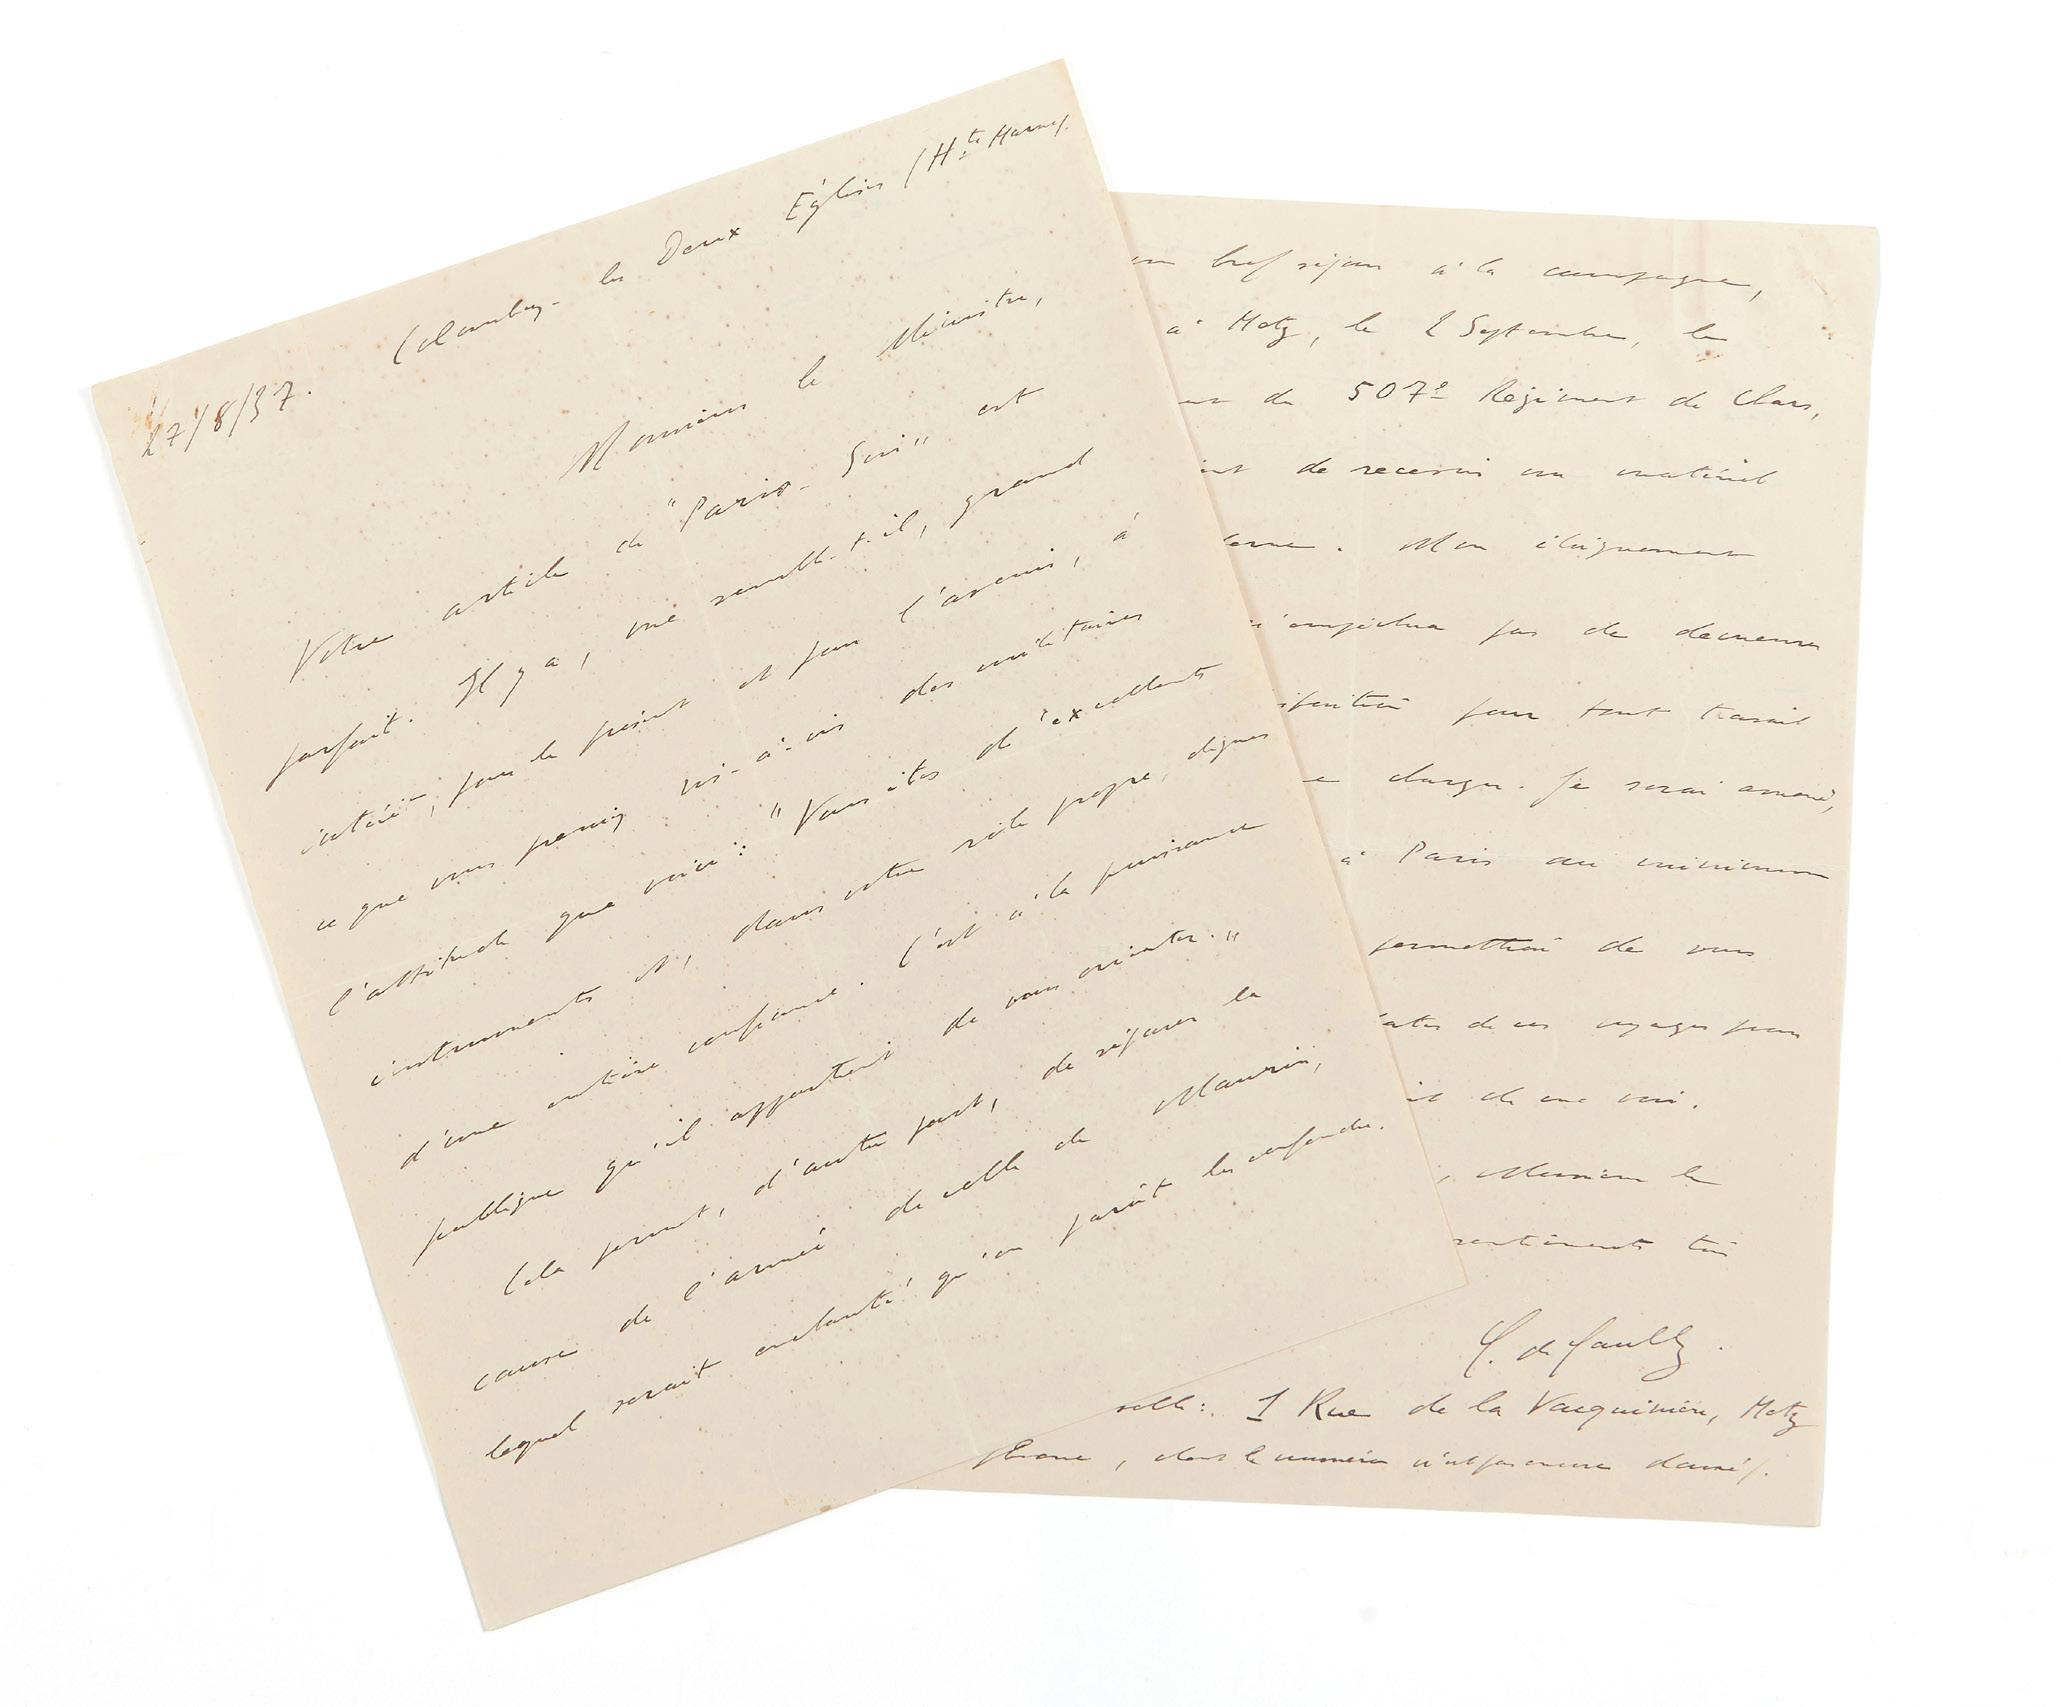 Colombey-les Deux Églises (Hte Marne).
27/8/37.
Monsieur le Ministre,
Votre article de "Paris-Soir" est
parfait. Il y a, me semble-t-il, grand
intérêt, pour le présent et pour l'avenir, à
ce que vous preniez vis-à-vis des militaires
l'attitude que voici: "Vous êtes d'excellents
instruments et, dans votre rôle propre, dignes
d'une entière confiance. C'est à la puissance
publique qu'il appartient de vous orienter."
Cela permet, d'autre part, de séparer la
cause de l'armée de celle de Maurin,
lequel serait enchanté qu'on parût les confondre.
un bref séjour à la campagne,
à Metz, le 2 Septembre, le
du 507e Régiment de Chars,
de recevoir un matériel
Mon éloignement
n'empêchera pas de demeurer
pour tout travail
charger. Je serai amené,
à Paris au minimum
permettrai de vous
dates de ces voyages pour
de me voir.
, Monsieur le
sentiments très
C. de Gaulle.
1 Rue de la Vacquinière, Metz
phone, dont le numéro n'est pas encore donné).